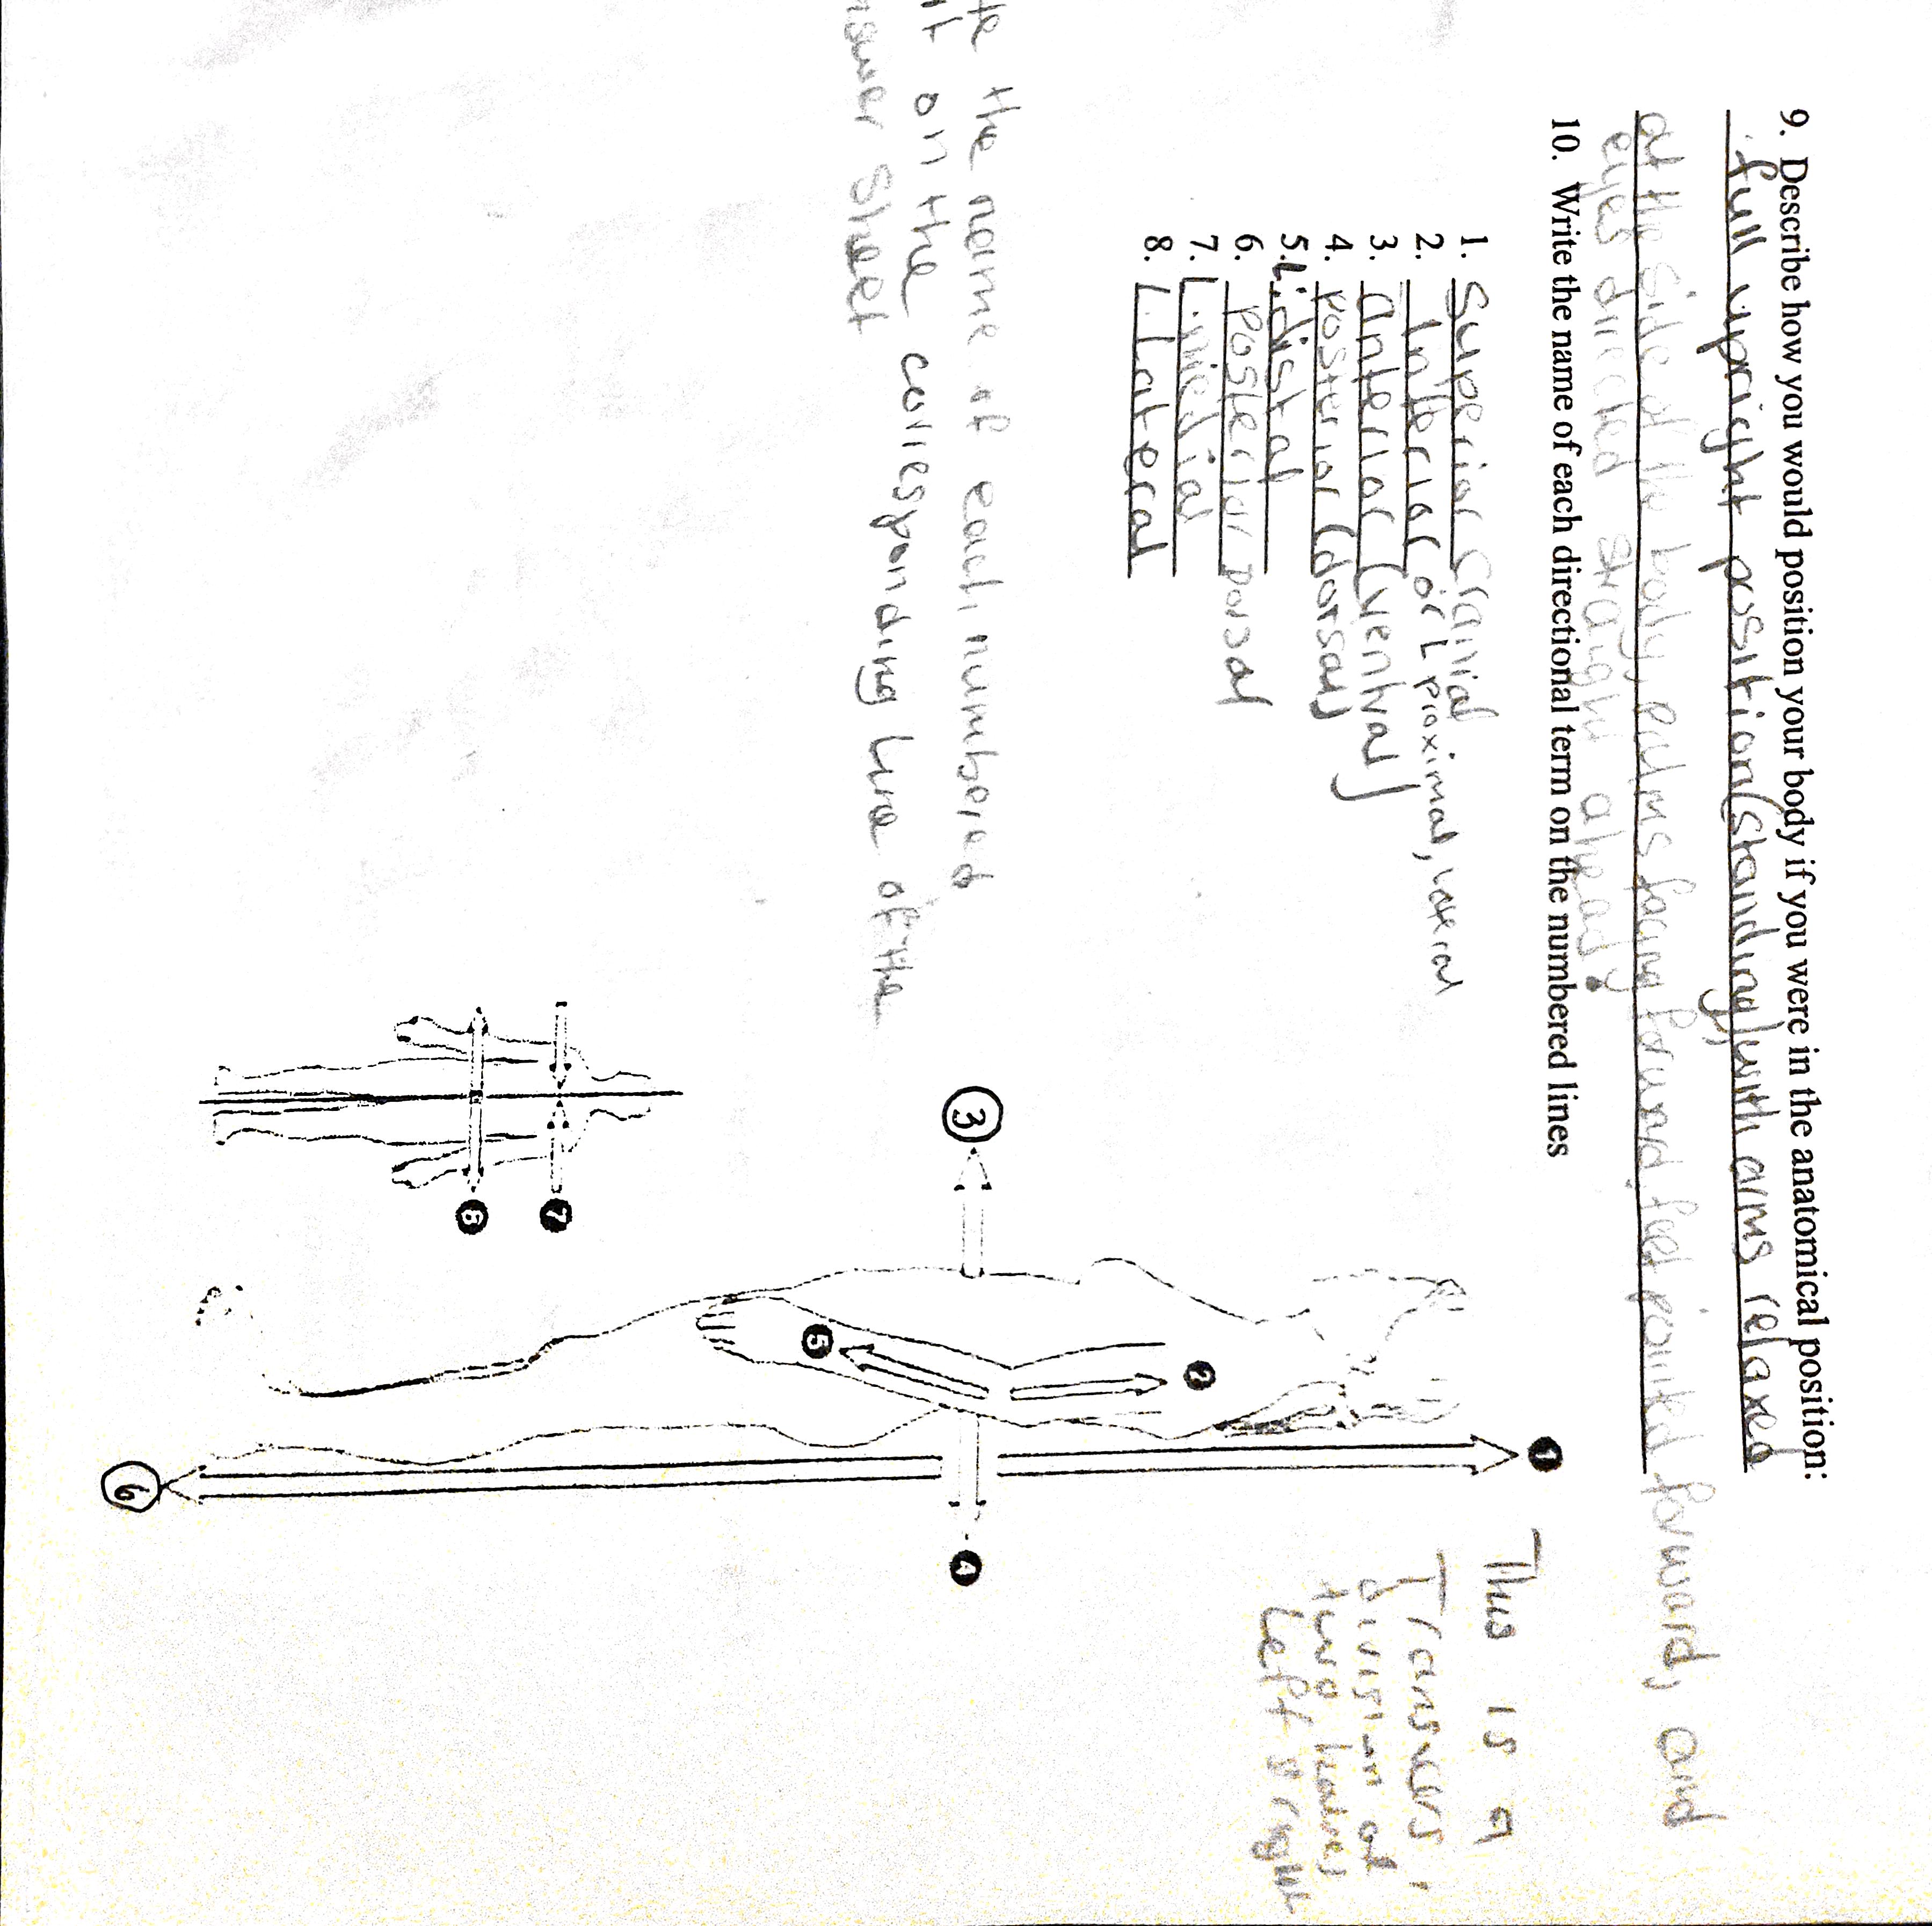 9. Describe how you would position your body if you were in the anatomical position:
full upright position (standing), with arms relaxed
at the side of the body, palms facing forward, feet pointed forward, and
eyes directed straight ahead.
10. Write the name of each directional term on the numbered lines
1. Superior Cranial
2. Inferior or L proximal, lateral
3. anterior (ventral)
4. posterior (dorsal)
5. L. distal
6. posterior Dorsal
7. L. medial
8. L. Lateral
the name of each numbered
on the corresponding line of the
answer sheet
This is a
Transvers
division
two
Left & right
1
2
3
4
5
6
7
8